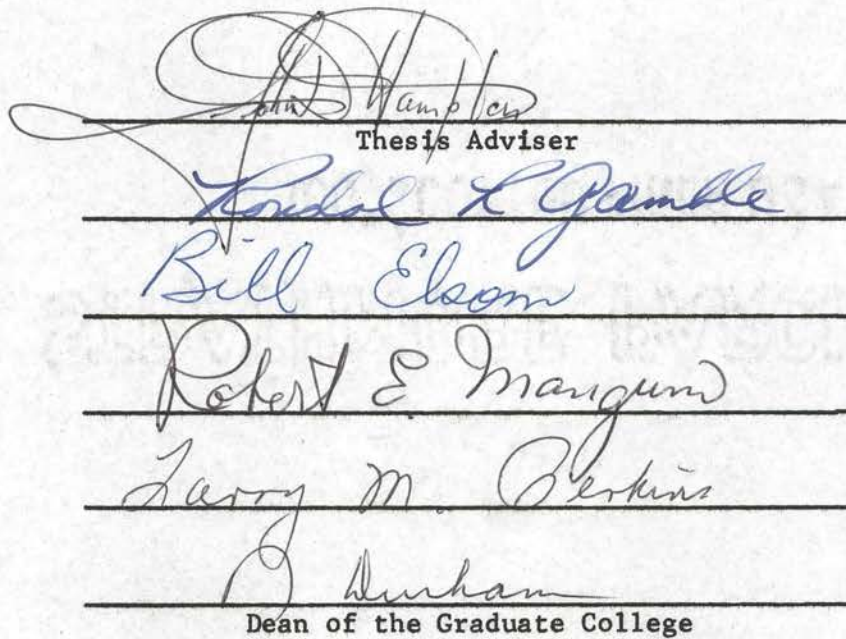 John D Hampton
Thesis Adviser
Kondal L Gamble
Bill Elsom
Robert E. Mangum
Larry M. Perkins
Durham
Dean of the Graduate College